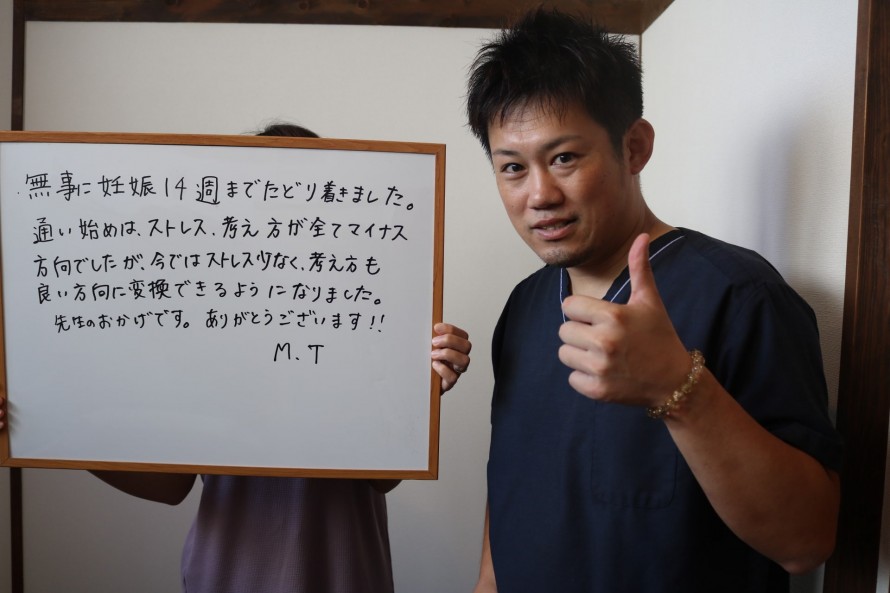 無事に妊娠14週までたどり着きました。
通い始めは、ストレス、考え方が全てマイナス
方向でしたが、今ではストレス少なく、考え方も
良い方向に変換できるようになりました。
先生のおかげです。ありがとうございます!!
M.T